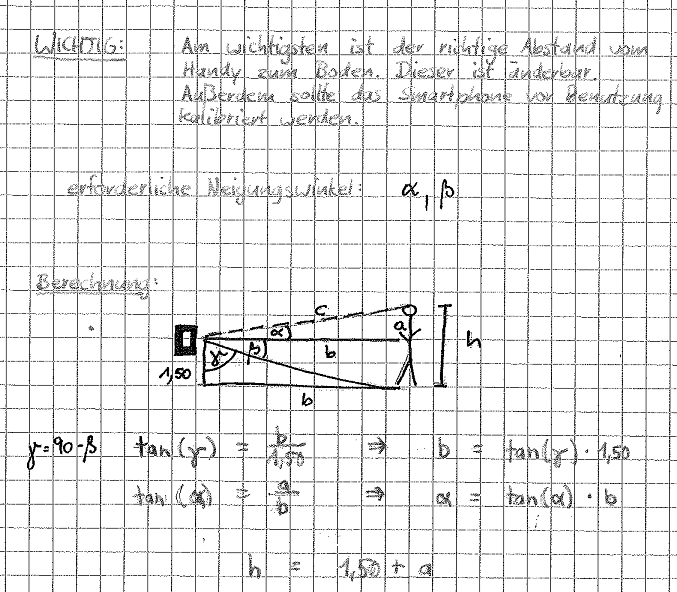 WICHTIG: Am wichtigsten ist der richtige Abstand vom
Handy zum Boden. Dieser ist änderbar.
Außerdem sollte das Smartphone vor Benutzung
kalibriert werden.
erforderliche Neigungswinkel: α, β
Berechnung:
c
α a
h
γ β b
1,50
b
γ = 90 - β tan(γ) = b/1,50 ⇒ b = tan(γ) · 1,50
tan(α) = a/b ⇒ α = tan(α) · b
h = 1,50 + a